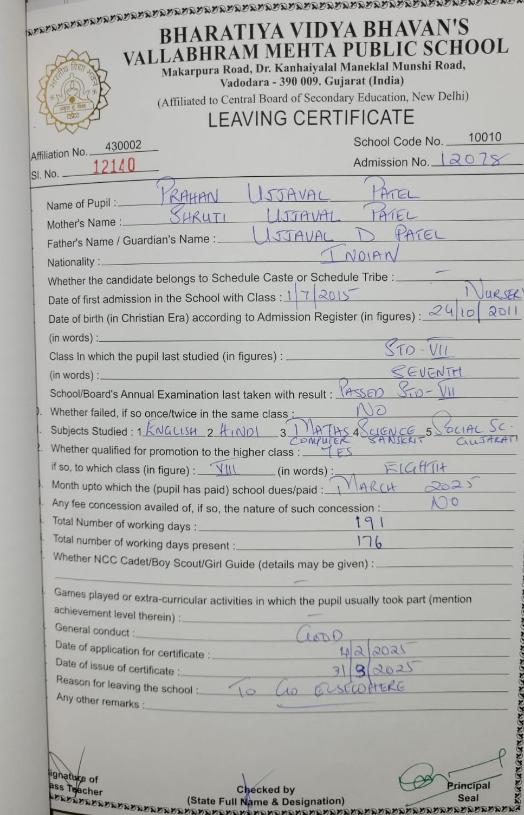 BHARATIYA VIDYA BHAVAN'S
VALLABHRAM MEHTA PUBLIC SCHOOL
Makarpura Road, Dr. Kanhaiyalal Maneklal Munshi Road,
Vadodara - 390 009. Gujarat (India)
(Affiliated to Central Board of Secondary Education, New Delhi)
LEAVING CERTIFICATE
Affiliation No. 430002 School Code No. 10010
Sl. No. 12140 Admission No. 12078
Name of Pupil : PRAHAN UJJAVAL PATEL
Mother's Name : SHRUTI UJJAVAL PATEL
Father's Name / Guardian's Name : UJJAVAL D PATEL
Nationality : INDIAN
Whether the candidate belongs to Schedule Caste or Schedule Tribe : –
Date of first admission in the School with Class : 1/7/2015 NURSERY
Date of birth (in Christian Era) according to Admission Register (in figures) : 24/10/2011
(in words) :
Class In which the pupil last studied (in figures) : STD-VII
(in words) : SEVENTH
School/Board's Annual Examination last taken with result : PASSED STD-VII
Whether failed, if so once/twice in the same class : NO
Subjects Studied : 1 ENGLISH 2 HINDI 3 MATHS 4 SCIENCE 5 SOCIAL SC.
COMPUTER SANSKRIT GUJARATI
Whether qualified for promotion to the higher class : YES
if so, to which class (in figure) : VIII (in words) : EIGHTH
Month upto which the (pupil has paid) school dues/paid : MARCH 2025
Any fee concession availed of, if so, the nature of such concession : NO
Total Number of working days : 191
Total number of working days present : 176
Whether NCC Cadet/Boy Scout/Girl Guide (details may be given) :
–
Games played or extra-curricular activities in which the pupil usually took part (mention
achievement level therein) : –
General conduct : GOOD
Date of application for certificate : 4/2/2025
Date of issue of certificate : 31/3/2025
Reason for leaving the school : TO GO ELSEWHERE
Any other remarks :
ignature of
ass Teacher
Checked by
(State Full Name & Designation)
Principal
Seal